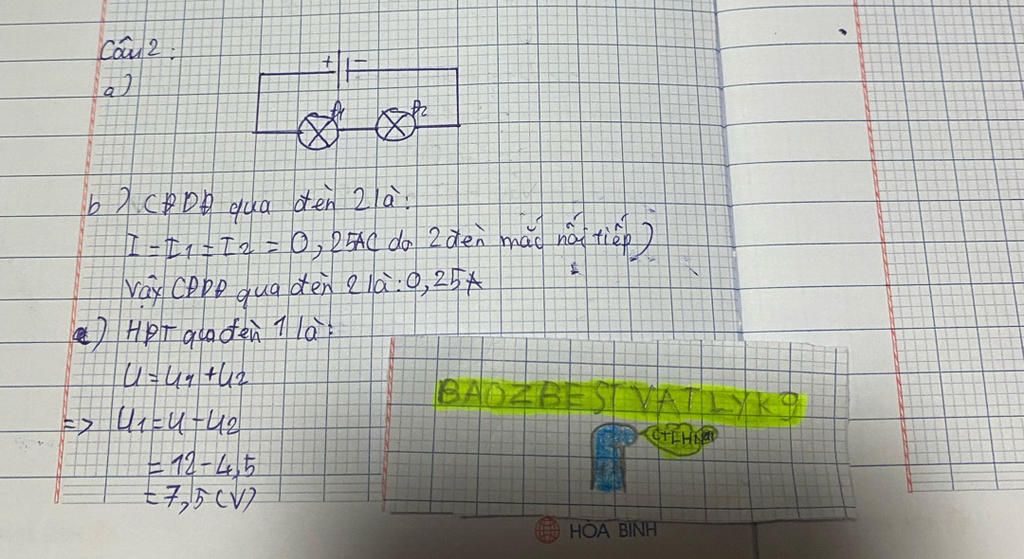 Câu 2:
a)
+ -
Đ1 Đ2
b) CĐDĐ qua đèn 2 là:
I = I1 = I2 = 0,25A( do 2 đèn mắc nối tiếp)
Vậy CĐDĐ qua đèn 2 là: 0,25A
c) HĐT qua đèn 1 là:
U = U1 + U2
=> U1 = U - U2
= 12 - 4,5
= 7,5 (V)
BAOZBEST VATLYK9
HÒA BÌNH